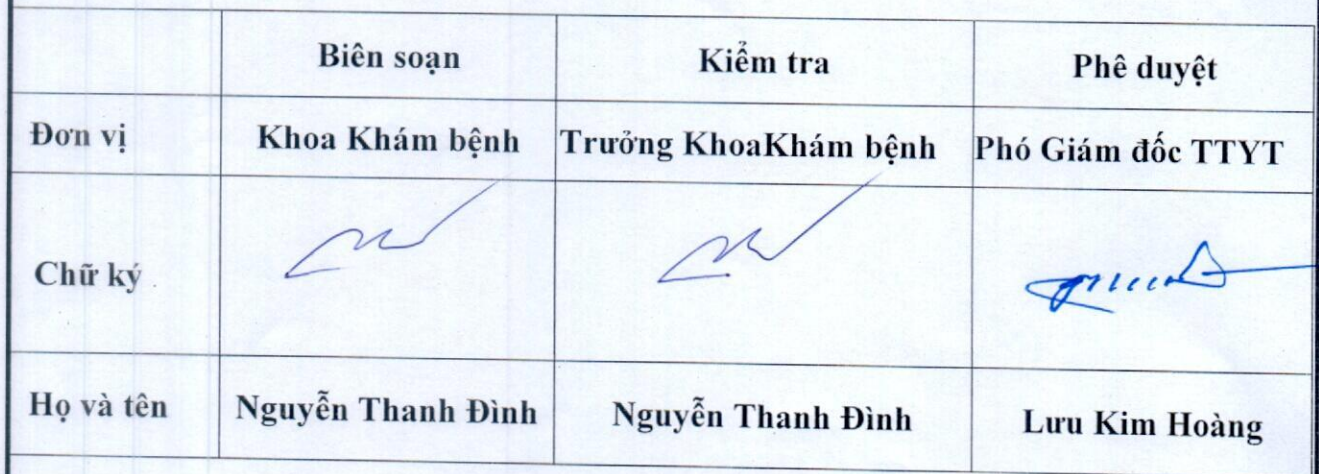 Biên soạn Kiểm tra Phê duyệt
Đơn vị Khoa Khám bệnh Trưởng KhoaKhám bệnh Phó Giám đốc TTYT
Chữ ký
Họ và tên Nguyễn Thanh Đình Nguyễn Thanh Đình Lưu Kim Hoàng